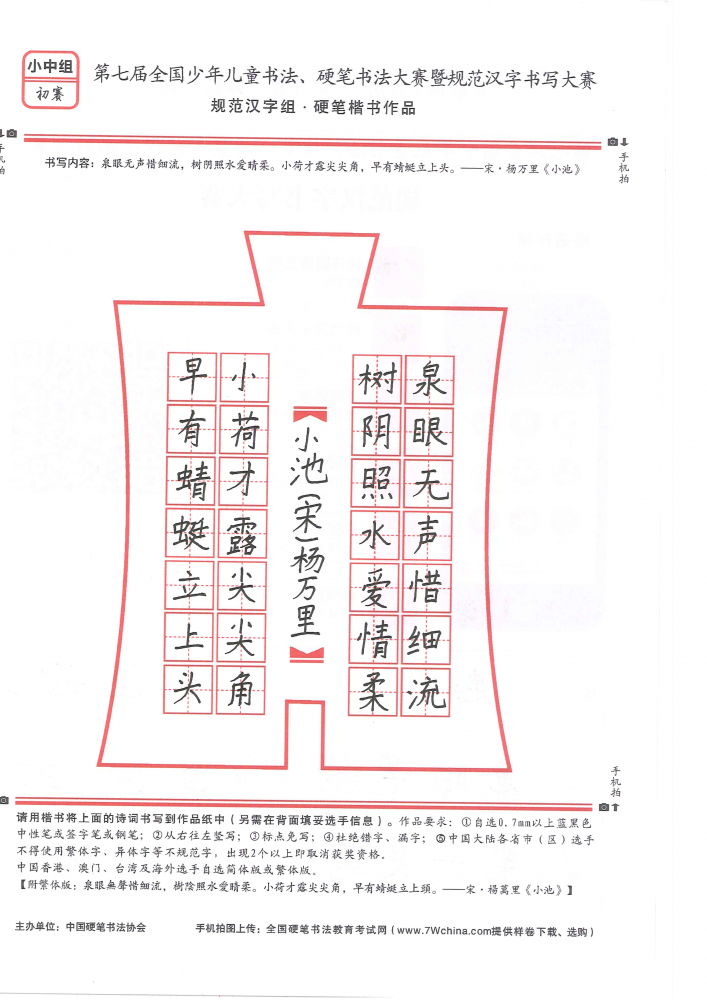 小中组
初赛
第七届全国少年儿童书法、硬笔书法大赛暨规范汉字书写大赛
规范汉字组·硬笔楷书作品
手机拍
手机拍
书写内容：泉眼无声惜细流，树阴照水爱晴柔。小荷才露尖尖角，早有蜻蜓立上头。——宋·杨万里《小池》
泉眼无声惜细流
树阴照水爱情柔
小池(宋)杨万里
小荷才露尖尖角
早有蜻蜓立上头
手机拍
请用楷书将上面的诗词书写到作品纸中（另需在背面填妥选手信息）。作品要求：①自选0.7mm以上蓝黑色
中性笔或签字笔或钢笔；②从右往左竖写；③标点免写；④杜绝错字、漏字；⑤中国大陆各省市（区）选手
不得使用繁体字、异体字等不规范字，出现2个以上即取消获奖资格。
中国香港、澳门、台湾及海外选手自选简体版或繁体版。
【附繁体版：泉眼無聲惜細流，樹陰照水愛晴柔。小荷才露尖尖角，早有蜻蜓立上頭。——宋·楊萬里《小池》】
主办单位：中国硬笔书法协会
手机拍图上传：全国硬笔书法教育考试网（www.7Wchina.com提供样卷下载、选购）